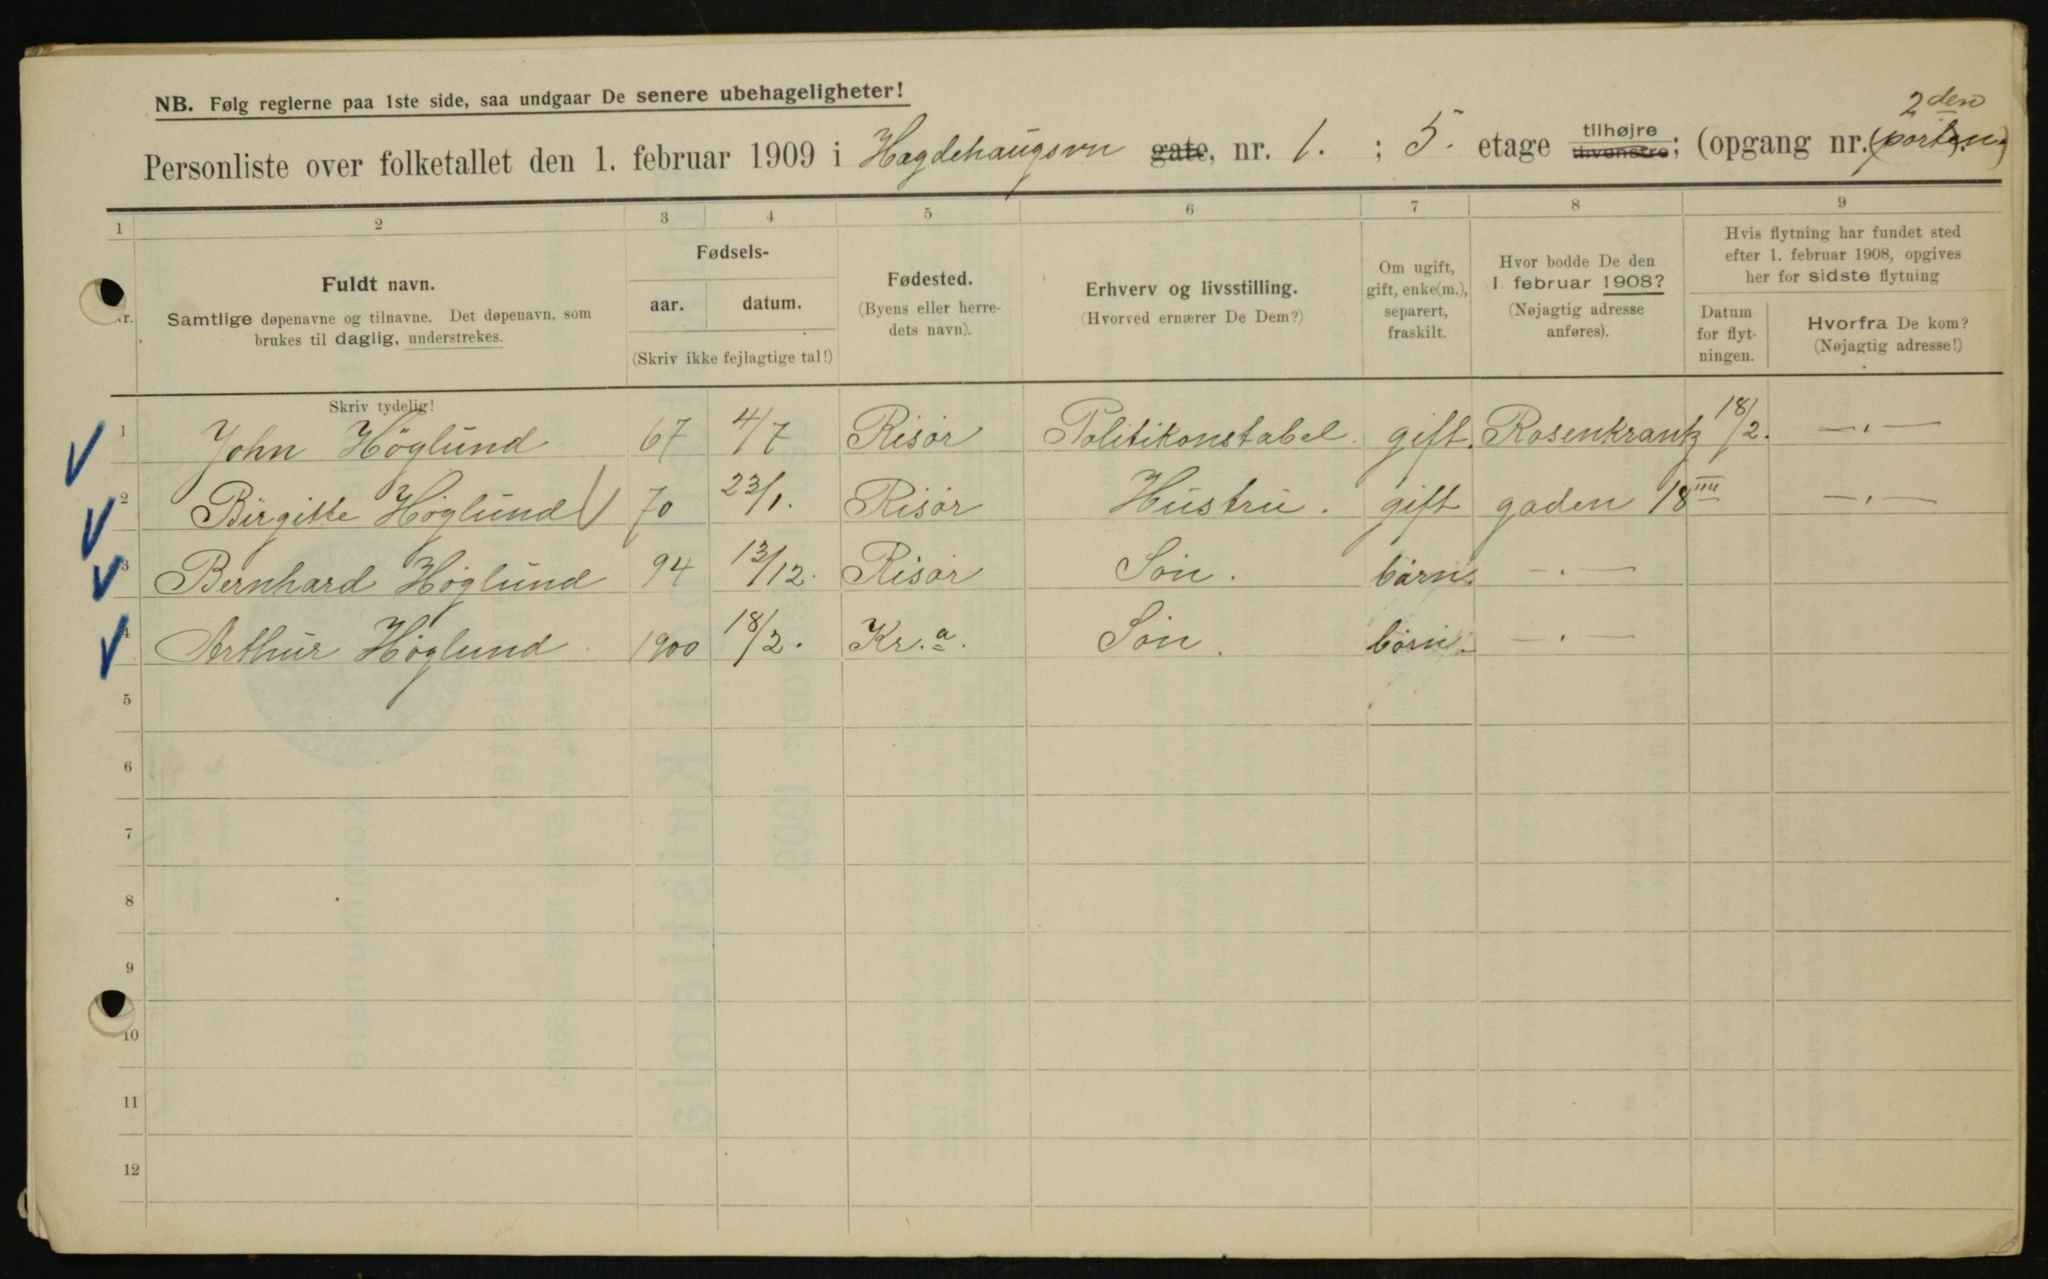 NB. Følg reglerne paa 1ste side, saa undgaar De senere ubehageligheter!
2den
Personliste over folketallet den 1. februar 1909 i Hægdehaugsvn gate, nr. 1. ; 5. etage tilhøjre tilvenstre; (opgang nr. (porten.)
1 2 3 4 5 6 7 8 9
Nr.
Fuldt navn.
Samtlige døpenavne og tilnavne. Det døpenavn, som
brukes til daglig, understrekes.
Fødsels-
aar. datum.
(Skriv ikke fejlagtige tal!)
Fødested.
(Byens eller herre-
dets navn).
Erhverv og livsstilling.
(Hvorved ernærer De Dem?)
Om ugift,
gift, enke(m.),
separert,
fraskilt.
Hvor bodde De den
1. februar 1908?
(Nøjagtig adresse
anføres).
Hvis flytning har fundet sted
efter 1. februar 1908, opgives
her for sidste flytning
Datum
for flyt-
ningen.
Hvorfra De kom?
(Nøjagtig adresse!)
Skriv tydelig!
1 John Höglund 67 4/7 Risør Politikonstabel. gift. Rosenkrantz 18/2. —„—
2 Birgitte Höglund 70 23/1. Risør Hustru. gift gaden 18 IIII —„—
3 Bernhard Höglund 94 13/12. Risør Søn. børn. —„—
4 Arthur Höglund 1900 18/2. Kr.a. Søn. børn. —„—
5
6
7
8
9
10
11
12